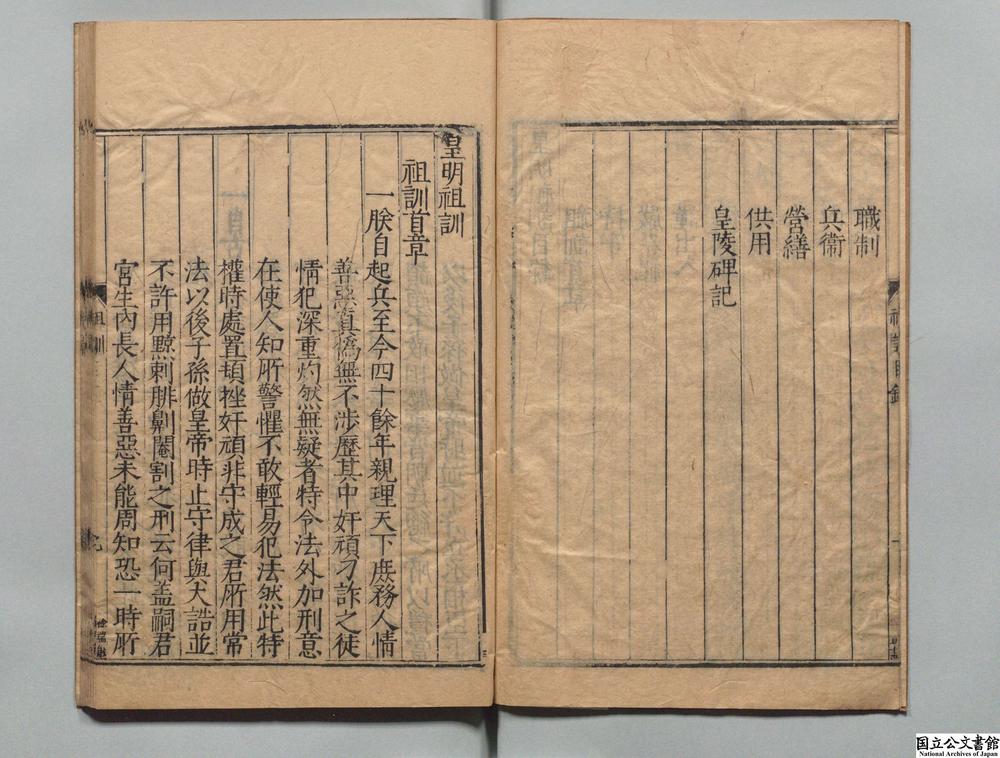 職制
兵衞
營繕
供用
皇陵碑記
皇明祖訓
祖訓首章
一朕自起兵至今四十餘年親理天下庶務人情
善惡真僞無不涉歷其中奸頑刁詐之徒
情犯深重灼然無疑者特令法外加刑意
在使人知所警懼不敢輕易犯法然此特
權時處置頓挫奸頑非守成之君所用常
法以後子孫做皇帝時止守律與大誥並
不許用黥剌腓劓閹割之刑云何盖嗣君
宮生內長人情善惡未能周知恐一時所
祖訓
国立公文書館
National Archives of Japan